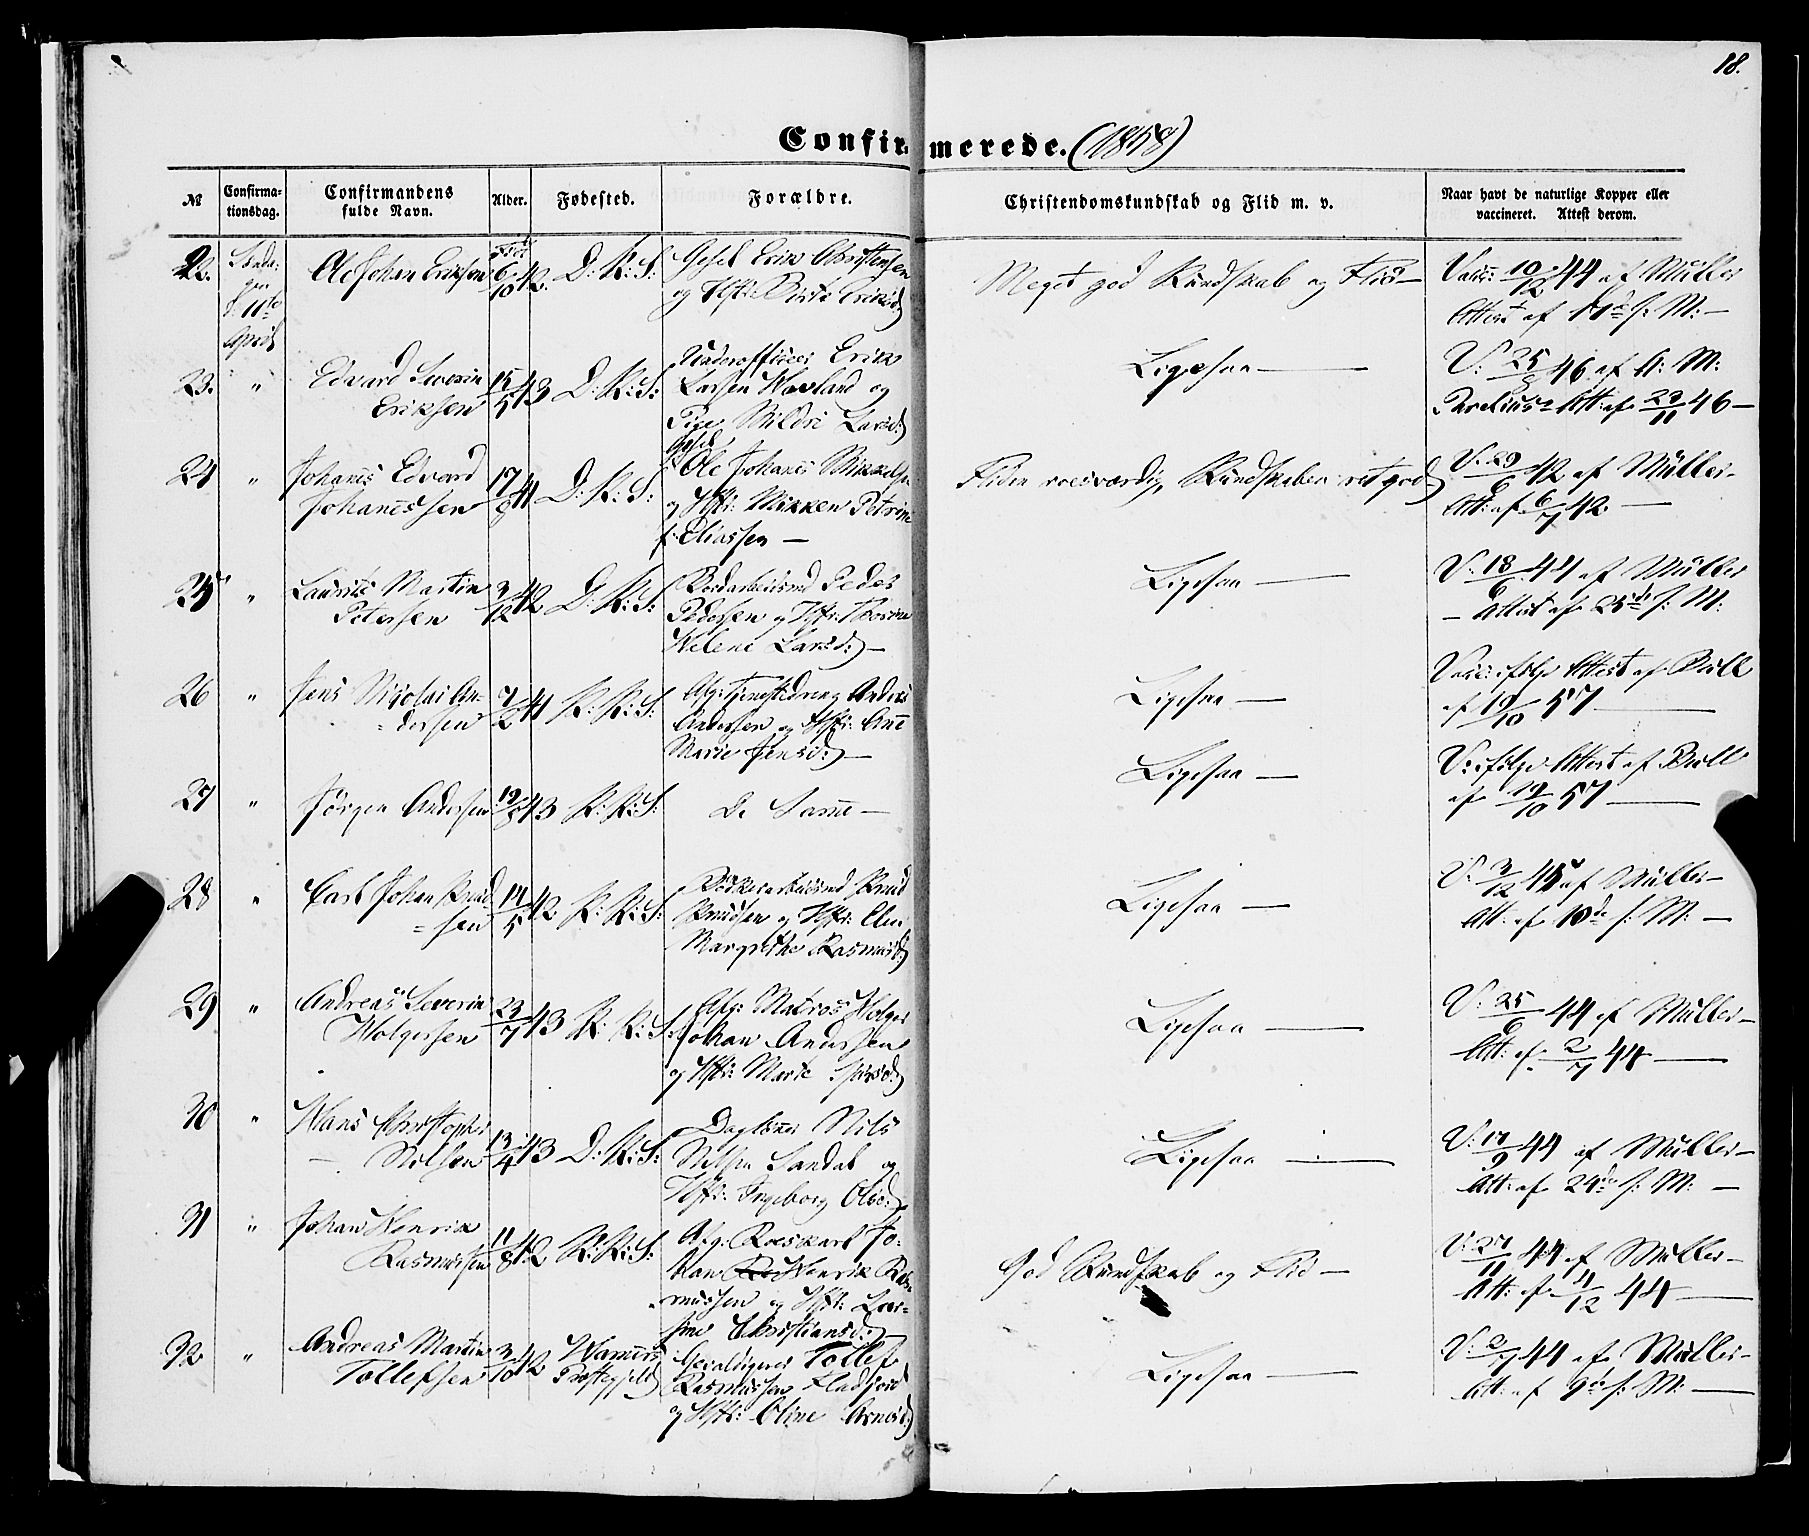 18.
Confirmerede. (1858)
№
Confirma-
tionsdag.
Confirmandens
fulde Navn.
Alder.
Fødested.
Forældre.
Christendomskundskab og Flid m. v.
Naar havt de naturlige Kopper eller
vaccineret. Attest derom.
22. Sønda-
gen
d: 11te
April
Ole Johan Eriksen
Født
6/10 42. D: K: S:
Gesel Erik Christensen
og Hstr: Birte Eriksd
Meget god Kundskab og Flid —
Vacc: 10/12 44 af Müller
Attest af 17de s: M: —
23. "
Edvard Severin
Eriksen
15/5 43 D: K: S:
Underofficeer Erik
Larsen Havland og
Pige Mildri Larsd:
Ligesaa —
V: 25/8 46 af A: M:
Parelius's Att: af 22/11 46 —
24 "
Johanes Edvard
Johanessen
17/8 41 D: K: S:
Gesel
Ole Johanes Mikkels:
og Hstr: Mikken Petrine
f: Eliassen —
Fliden roesværdig, Kundskaben ret god
V: 29/6 42 af Müller —
Att: af 6/7 42. —
25 "
Laurits Martin
Petersen
3/12 42 D: K: S:
Bordarbeidsmd Peder
Pedersen og Hstr: Thorine
Helene Larsd: —
Ligesaa —
V: 18/6 44 af Müller
— Attest af 25de s: M:
26 "
Jens Nikolai An-
dersen
7/2 41 K: K: S:
Afg: Tjenestedreng Anders
Andersen og Hstr: Ane
Marie Jensd: —
Ligesaa —
Vacc: ifølge Attest af Bull
af 19/10 57 —
27 "
Jörgen Andersen
19/8 43 K: K: S:
De Samme —
Ligesaa —
V: ifølge Attest af Bull
af 19/10 57 —
28 "
Carl Johan Knud
=sen
14/5 42 K: K: S:
Knud
Knudsen og Hstr: Elen
Margrethe Rasmusd:
Ligesaa —
V: 3/12 45 af Müller —
Att: af 10de s: M: —
29 "
Andreas Severin
Holgersen
23/7 43 K: K: S:
Afg: Matros Holger
Johan Andersen
og Hstr: Marte
Ligesaa —
V: 25/6 44 af Müller —
Att: af 2/7 44 —
30 "
Hans Christopher
Nilsen
13/4 43 D: K: S:
Dagløner Nils
Nilsen Sandal og
Hstr: Ingeborg Olsd:
Ligesaa —
V: 17/9 44 af Müller —
Att: af 24de s: M: —
31 "
Johan Henrik
Rasmussen
11/8 42 K: K: S:
Afg: Roeskarl Jo-
han Henrik Ras-
mussen og Hstr: Lov-
ise Christiansd: —
God Kundskab og Flid —
V: 27/11 44 af Müller —
Att: af 4/12 44 —
32 "
Andreas Martin
Tollefsen
3/10 42 Hammers
Præstegjeld
Gevaldigeren Tollef
Rasmussen Fladsjord
og Hstr: Oline Arnesd:
Ligesaa —
V: 2/7 44 af Müller —
Att: af 9de s: M: —